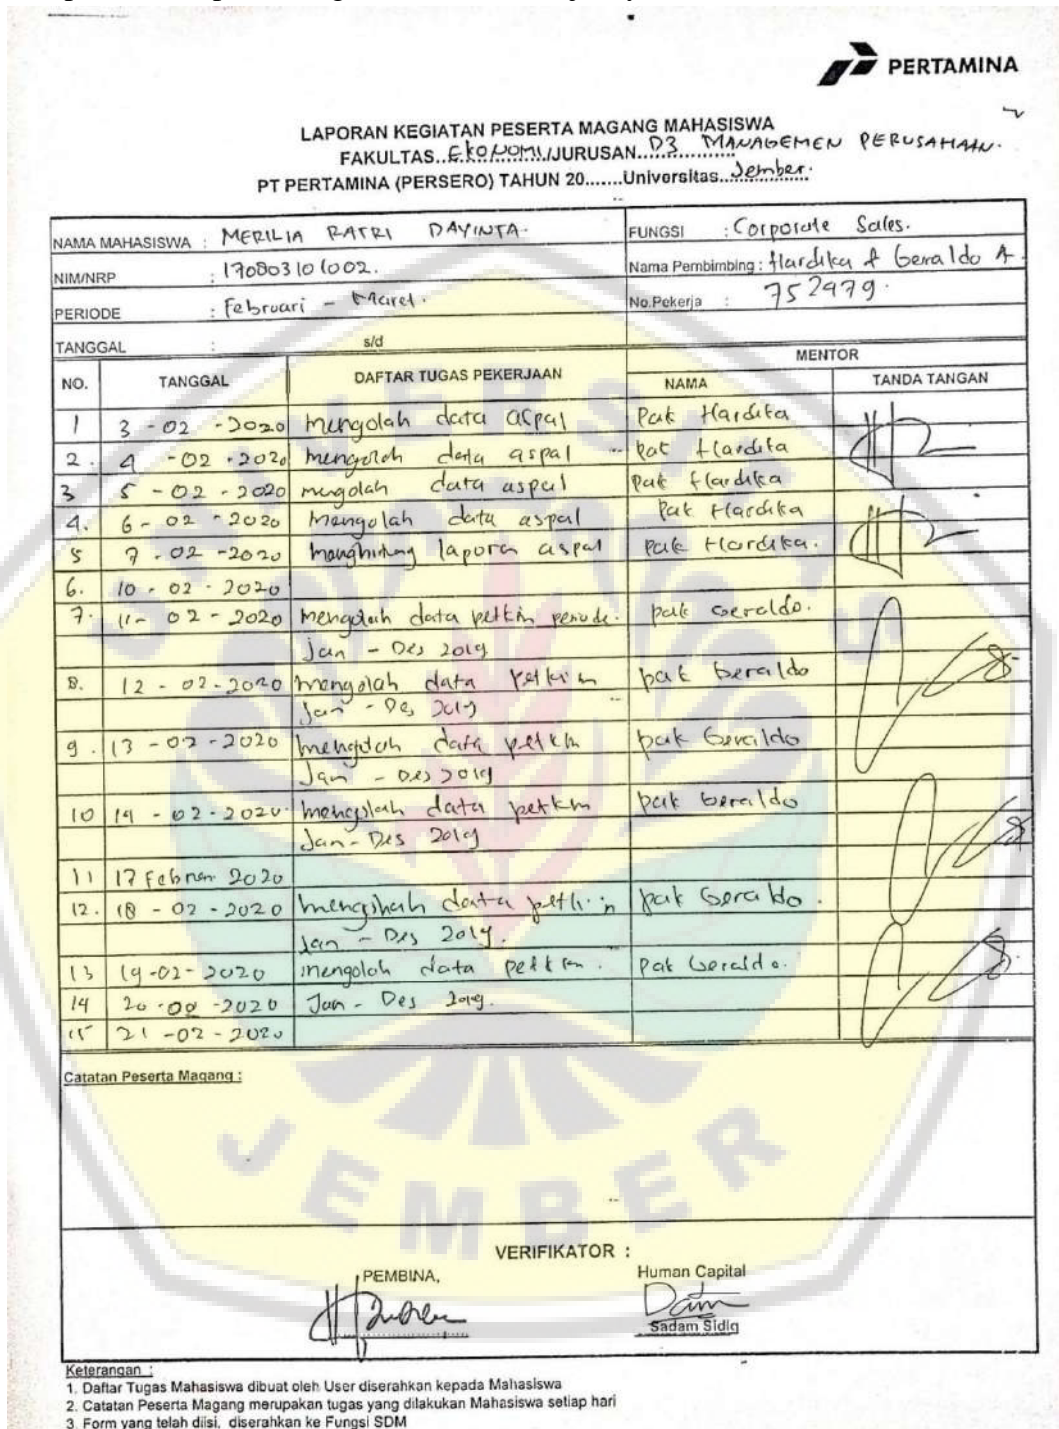 PERTAMINA
LAPORAN KEGIATAN PESERTA MAGANG MAHASISWA
FAKULTAS..EKONOMI./JURUSAN..D3 MANAGEMEN PERUSAHAAN.
PT PERTAMINA (PERSERO) TAHUN 20.......Universitas..Jember.
NAMA MAHASISWA : MERILIA RATRI DAYINTA. FUNGSI : Corporate Sales.
NIM/NRP : 170803101002. Nama Pembimbing : Hardika & Geraldo A.
PERIODE : Februari - Maret. No.Pekerja : 752979.
TANGGAL : s/d
NO. TANGGAL DAFTAR TUGAS PEKERJAAN MENTOR
NAMA TANDA TANGAN
1 3 - 02 - 2020 mengolah data aspal Pak Hardika
2. 4 - 02 - 2020 mengolah data aspal Pak Hardika
3 5 - 02 - 2020 mengolah data aspal Pak Hardika
4. 6 - 02 - 2020 Mengolah data aspal Pak Hardika
5 7 - 02 - 2020 menghitung laporan aspal Pak Hardika.
6. 10 - 02 - 2020
7. 11 - 02 - 2020 Mengolah data petkim periode. pak Geraldo.
Jan - Des 2019
8. 12 - 02 - 2020 mengolah data petkim pak Geraldo
Jan - Des 2019
9. 13 - 02 - 2020 mengolah data petkim pak Geraldo
Jan - Des 2019
10 14 - 02 - 2020 mengolah data petkim pak Geraldo
Jan - Des 2019
11 17 Februari 2020
12. 18 - 02 - 2020 mengolah data petkim pak Geraldo.
Jan - Des 2019.
13 19-02-2020 mengolah data petkim. pak Geraldo.
14 20-02-2020 Jan - Des 2019.
15 21 - 02 - 2020
Catatan Peserta Magang :
UNIVERSITAS
JEMBER
VERIFIKATOR :
PEMBINA, Human Capital
Sadam Sidiq
Keterangan :
1. Daftar Tugas Mahasiswa dibuat oleh User diserahkan kepada Mahasiswa
2. Catatan Peserta Magang merupakan tugas yang dilakukan Mahasiswa setiap hari
3. Form yang telah diisi, diserahkan ke Fungsi SDM